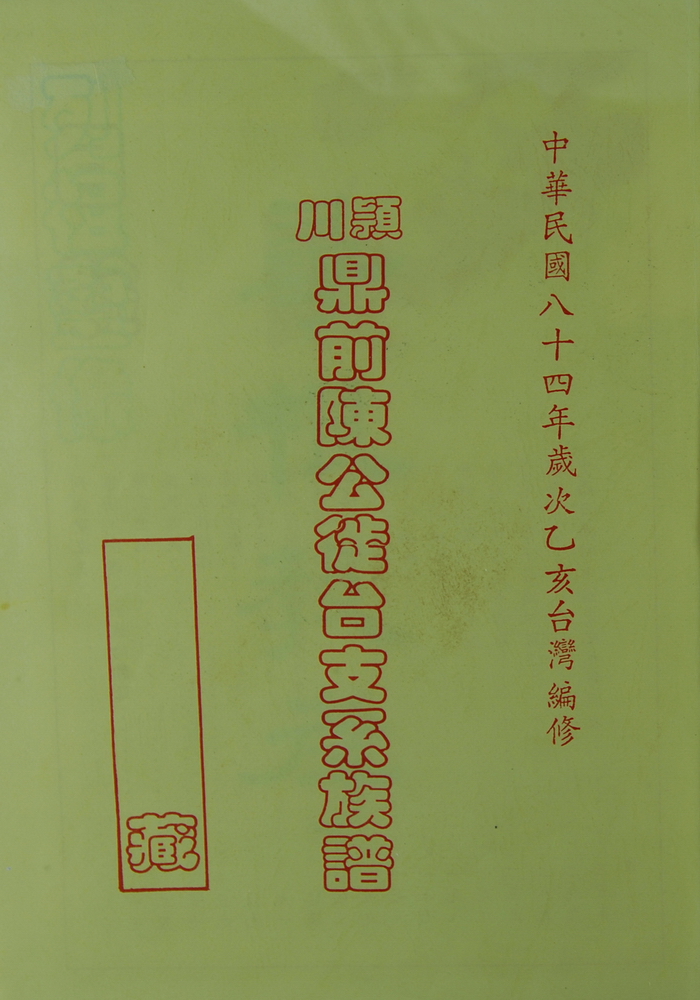 中華民國八十四年歲次乙亥台灣編修
潁川
鼎前陳公徙台支系族譜
藏